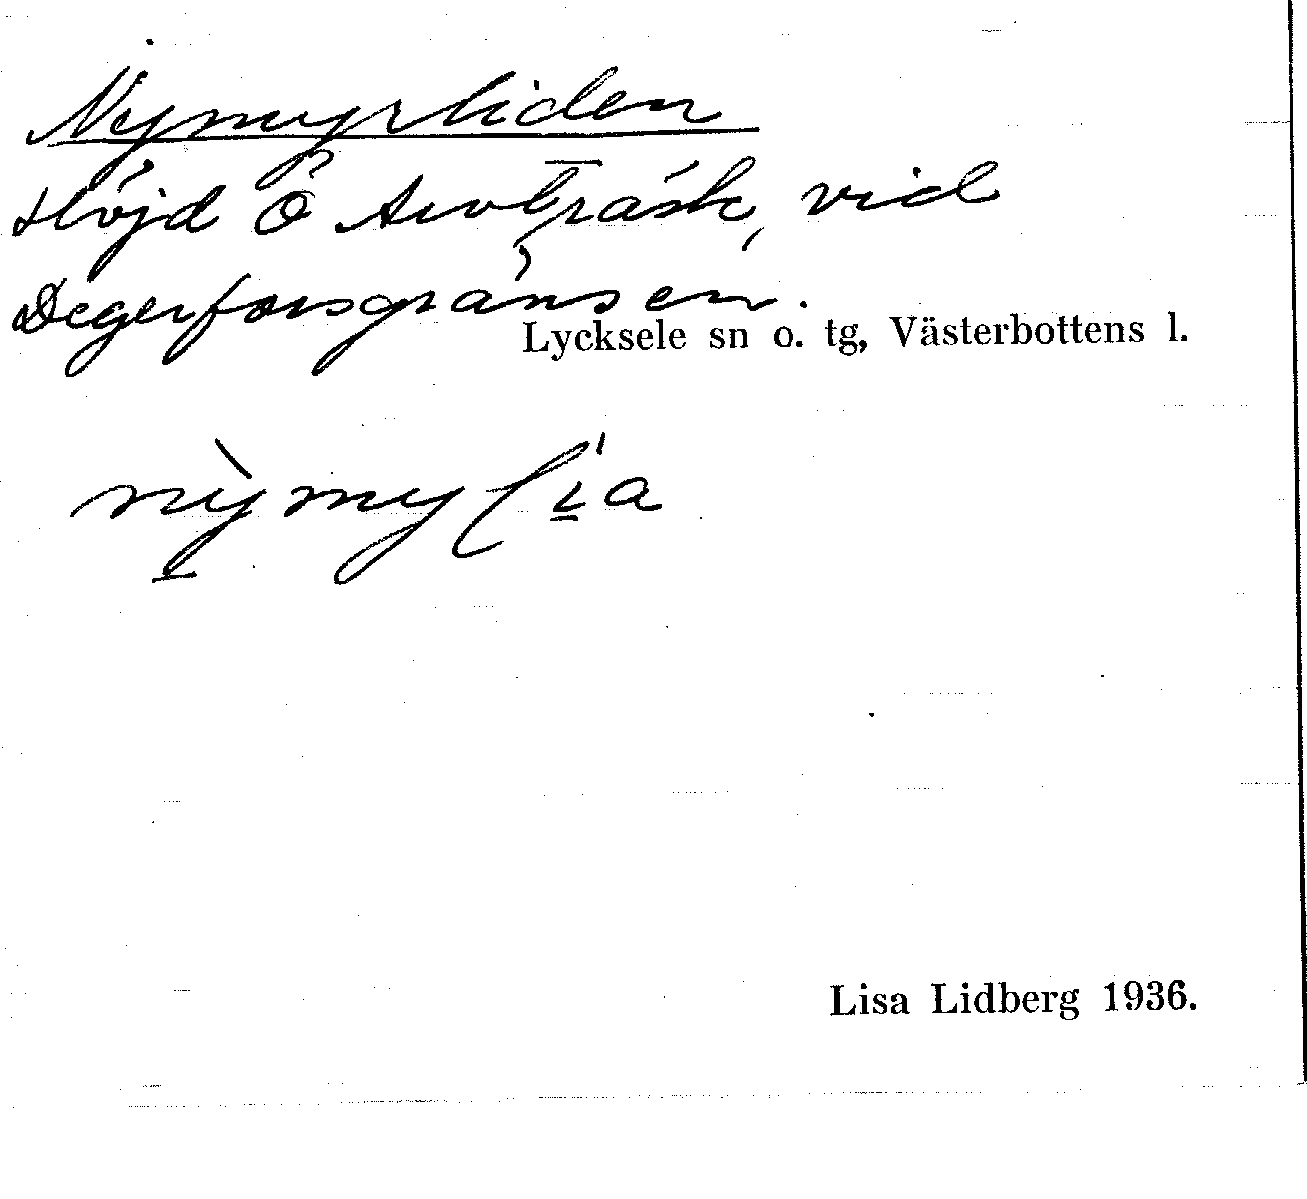 Nymyrliden
Höjd Ö Arvträsk, vid
Degerforsgränsen.
Lycksele sn o. tg, Västerbottens l.
nỳmylia
Lisa Lidberg 1936.